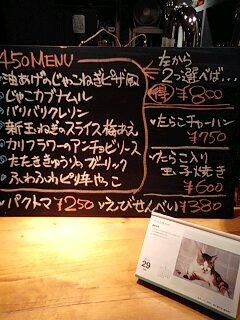 450MENU
油あげのじゃこねぎピザ風
じゃこカブナムル
パリパリクレソン
新玉ねぎのスライス梅あえ
カリフラワーのアンチョビソース
たたききゅうりのガーリック
ふわふわピリ辛やっこ
パクトマ¥250
えびせんべい¥380
左から
2つ選べば…
得¥800
たらこチャーハン
¥750
たらこ入り
玉子焼き
¥600
29